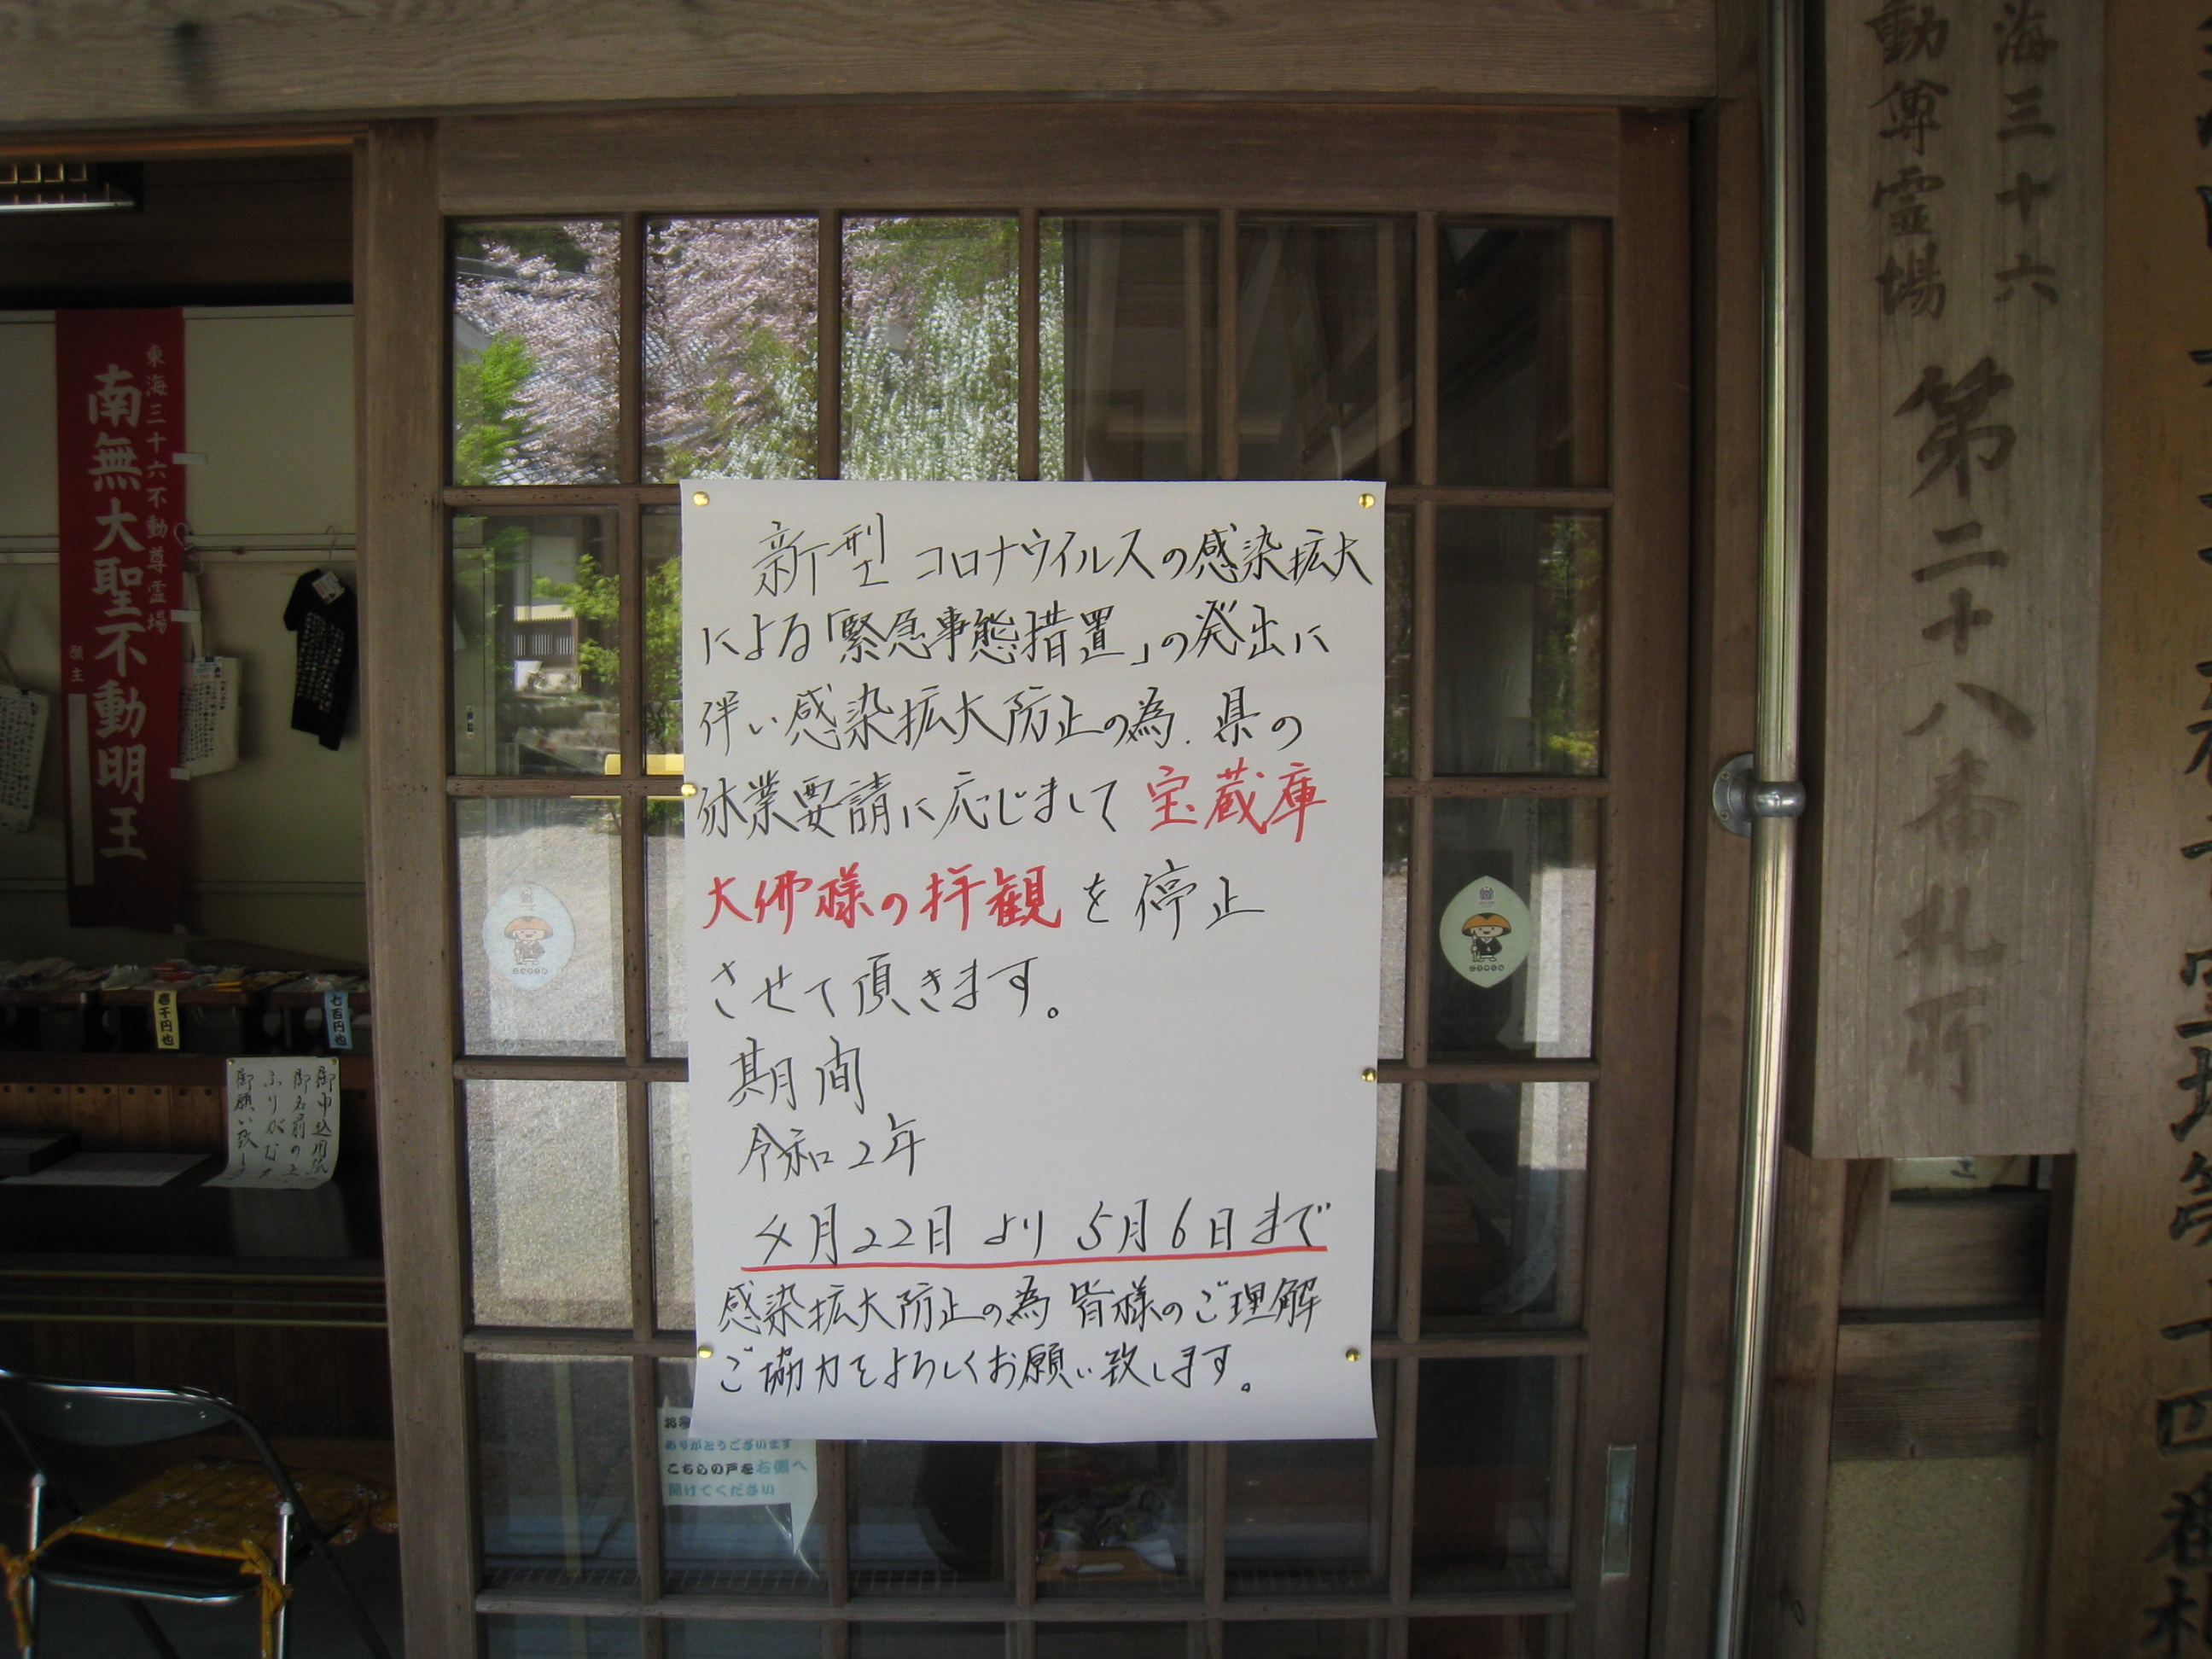 新型コロナウイルスの感染拡大
による「緊急事態措置」の発出に
伴い感染拡大防止の為、県の
休業要請に応じまして宝蔵庫
大佛様の拝観を停止
させて頂きます。
期間
令和2年
4月22日より5月6日まで
感染拡大防止の為皆様のご理解
ご協力をよろしくお願い致します。
海三十六
動尊霊場
第二十八番札所
東海三十六不動尊霊場
南無大聖不動明王
願主
七百円也
御申込用紙
御名前の上
ふりがな
御願い致し
ありがとうございます
こちらの戸を右側へ
開けてください